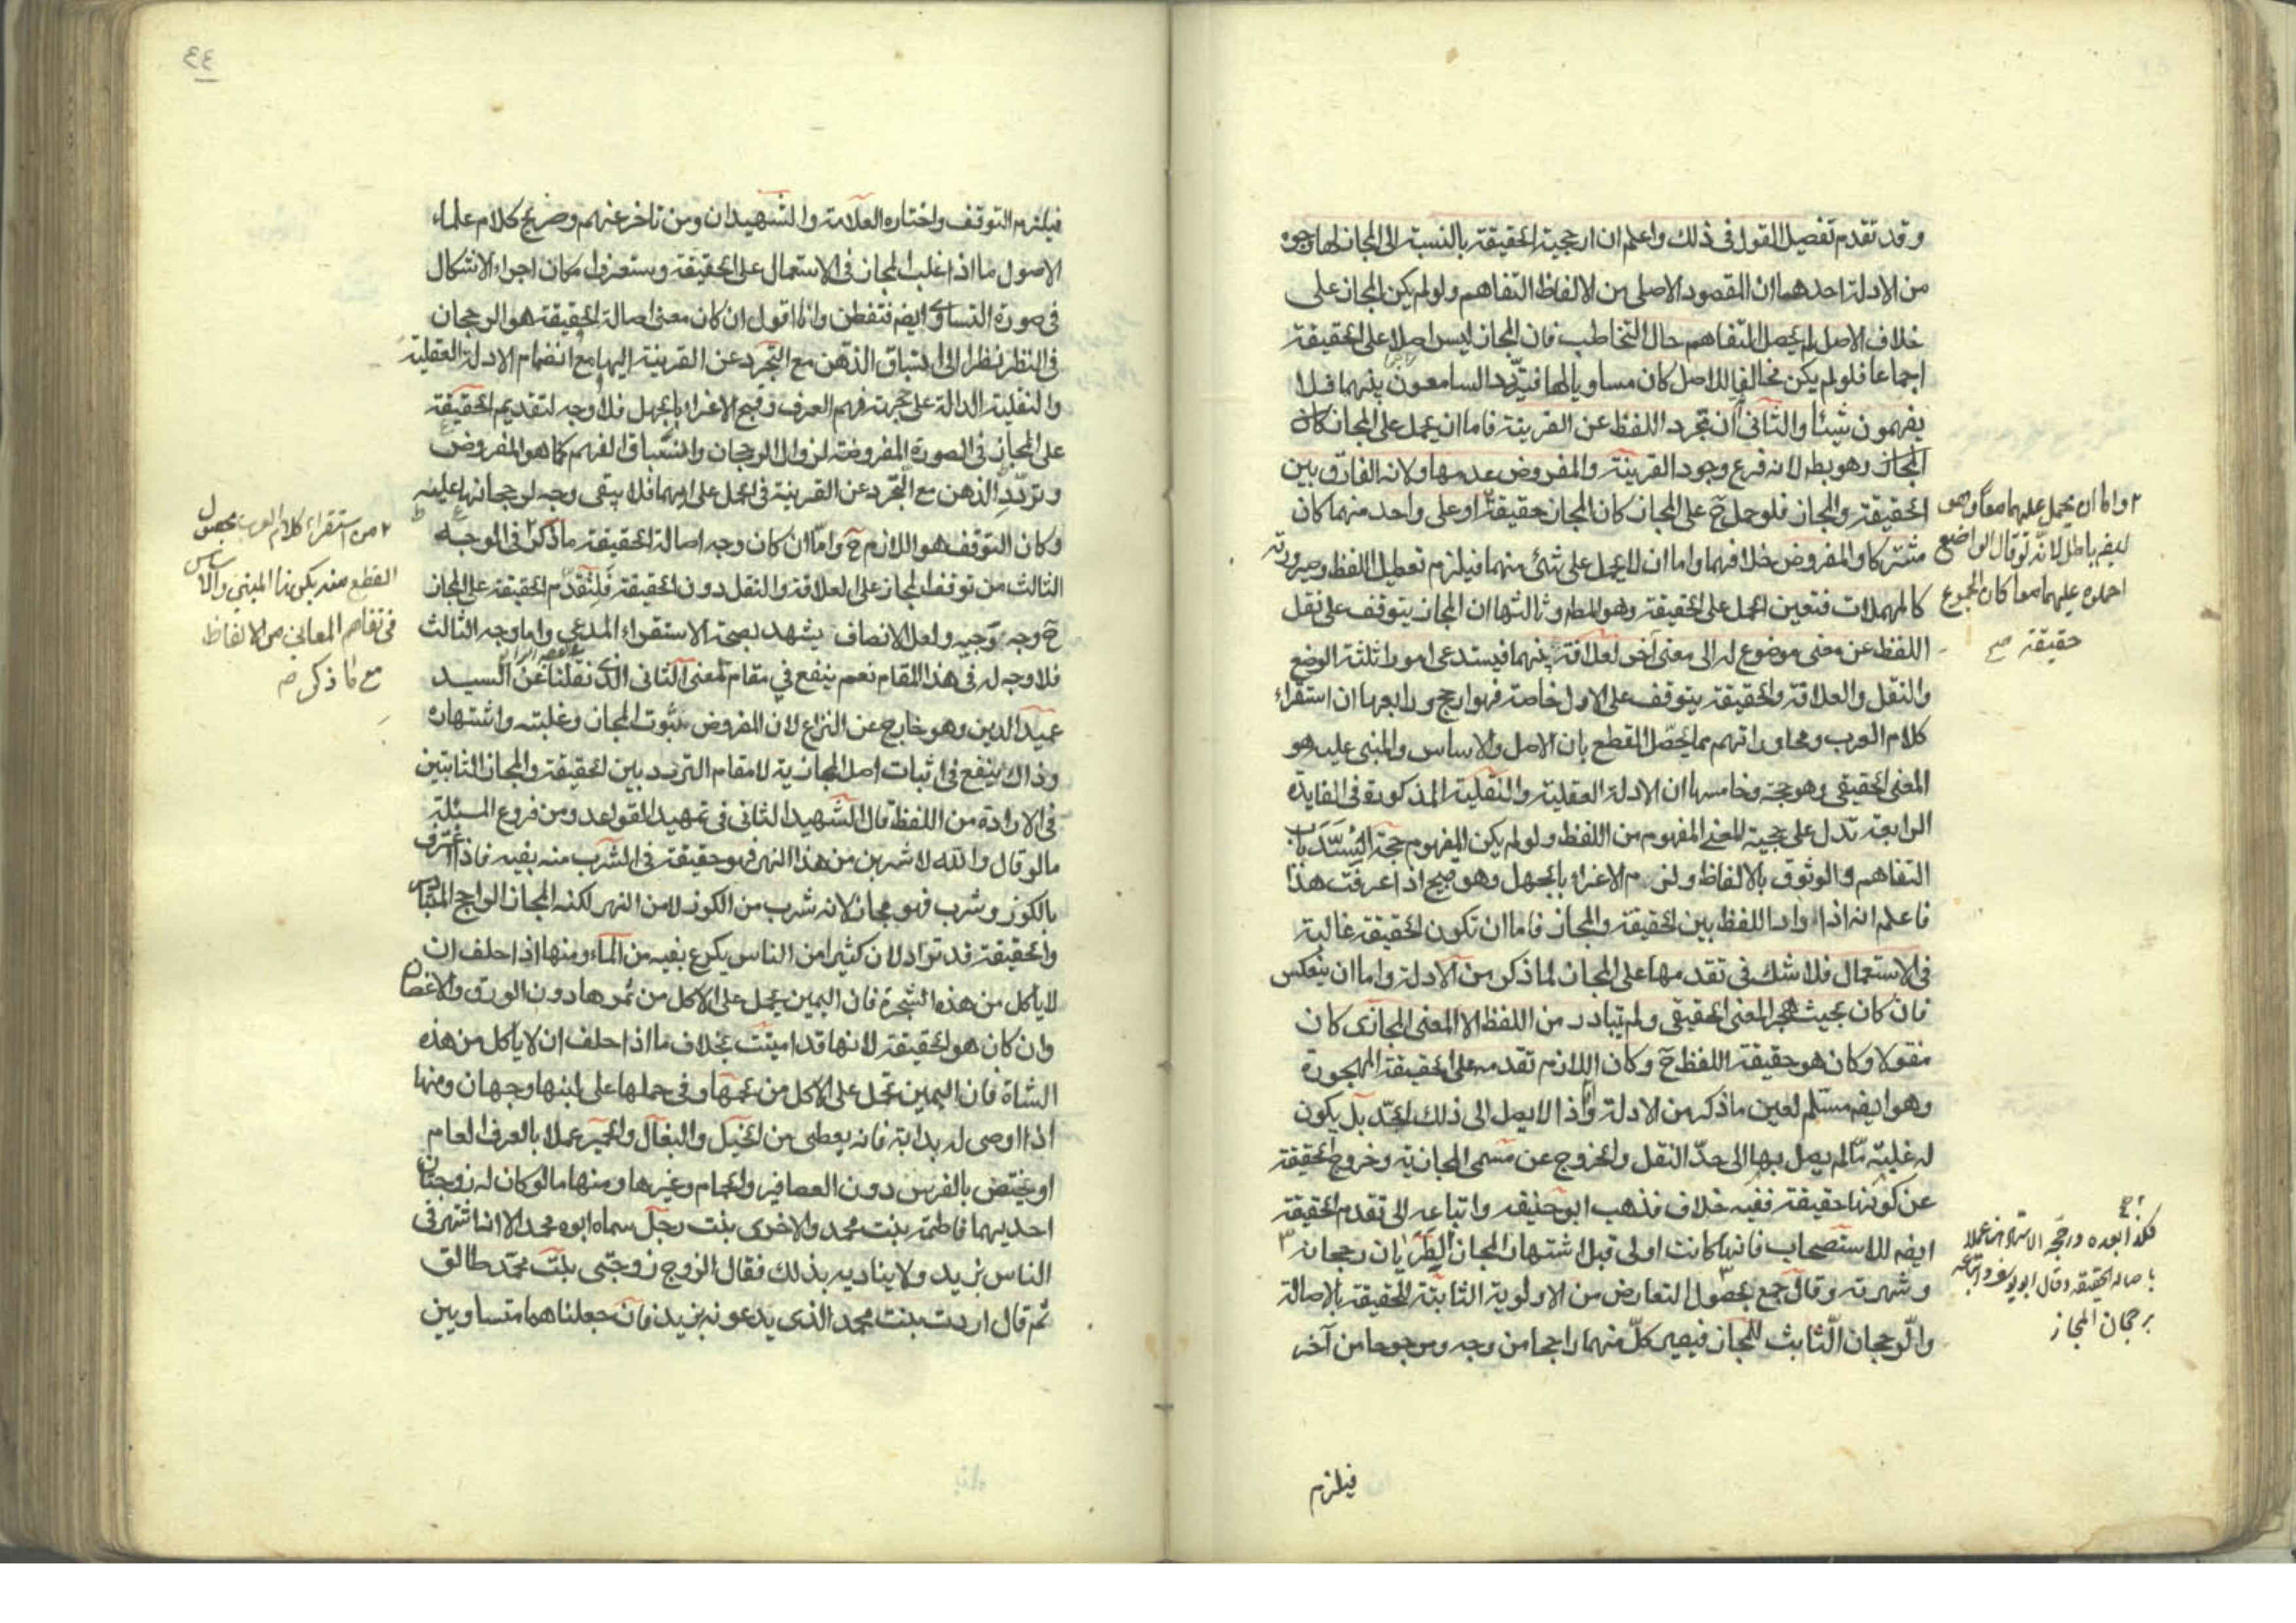 وقد تقدم تفصيل القول في ذلك واعلم ان ارجحية الحقيقة بالنسبة الى المجاز لها وجوه
من الادلة احدهما ان المقصود الاصلي من الالفاظ التفاهم ولو لم يكن المجاز على
خلاف الاصل لم يحصل التفاهم حال التخاطب فان المجاز ليس اصلا على الحقيقة
اجماعا فلو لم يكن مخالفا للاصل كان مساويا لها فيتردد السامعون بينهما فلا
يفهمون شيئا والثاني ان تجرد اللفظ عن القرينة فاما ان يحمل على المجاز كان
المجاز وهو بط لانه فرع وجود القرينة والمفروض عدمها ولانه الفارق بين
الحقيقة والمجاز فلو حمل ح على المجاز كان المجاز حقيقة او على واحد منهما كان
مشتركا والمفروض خلافهما واما ان لا يحمل على شئ منهما فيلزم تعطيل اللفظ وصيرورته
كالمهملات فتعين الحمل على الحقيقة وهو المط وثالثها ان المجاز يتوقف على نقل
اللفظ عن معنى موضوع له الى معنى آخر لعلاقة بينهما فيستدعى امورا ثلثة الوضع
والنقل والعلاقة والحقيقة يتوقف على الاول خاصة فهو ارجح ورابعها ان استقراء
كلام العرب ومحاوراتهم مما يحصل القطع بان الاصل والاساس والمبنى عليه هو
المعنى الحقيقي وهو حجة وخامسها ان الادلة العقلية والنقلية المذكورة في الفايدة
الرابعة تدل على حجية المعنى المفهوم من اللفظ ولو لم يكن المفهوم حجة لانسد باب
التفاهم والوثوق بالالفاظ ولزم الاغراء بالجهل وهو قبيح اذا عرفت هذا
فاعلم انه اذا دار اللفظ بين الحقيقة والمجاز فاما ان تكون الحقيقة غالبة
في الاستعمال فلا شك في تقدمها على المجاز لما ذكر من الادلة واما ان ينعكس
فان كان بحيث هجر المعنى الحقيقي ولم يتبادر من اللفظ الا المعنى المجازى كان
منقولا وكان هو حقيقة اللفظ ح وكان اللازم تقدمه على الحقيقة المهجورة
وهو ايضا مسلم لعين ما ذكر من الادلة واذا لا يصل الى ذلك الحد بل يكون
له غلبة ما لم يصل بها الى حد النقل والخروج عن مسمى المجازية وخروج الحقيقة
عن كونها حقيقة ففيه خلاف فذهب ابو حنيفه واتباعه الى تقدم الحقيقة
ايضا للاستصحاب فانها كانت اولى قبل اشتهار المجاز الطريان رجحانه
وشهرته وقال جمع بحصول التعارض من الاولوية الثابتة للحقيقة بالاصالة
والرجحان الثابت للمجاز فيصير كل منهما راجحا من وجه ومرجوحا من آخر
فيلزم
واما ان يحمل عليهما معا وهو
ايضا باطل لانه لو قال الواضع
احملوه عليهما معا كان المجموع
حقيقة صح
باصالة الحقيقة وقال ابو يوسف واتباعه
برجحان المجاز
٤٤
فيلزم التوقف واختاره العلامة والشهيدان ومن تاخر عنهم وصريح كلام علماء
الاصول ما اذا غلب المجاز في الاستعمال على الحقيقة وستعرف امكان اجراء الاشكال
في صورة التساوى ايضا فتفطن وانا اقول ان كان معنى اصالة الحقيقة هو الرجحان
في النظر نظرا الى استباق الذهن مع التجرد عن القرينة اليها مع انضمام الادلة العقلية
والنقلية الدالة على حجية فهم العرف وقبح الاغراء بالجهل فلا وجه لتقديم الحقيقة
على المجاز في الصورة المفروضة لزوال الرجحان وانسباق الفهم كما هو المفروض
وتردد الذهن مع التجرد عن القرينة في الحمل على ايهما فلا يبقى وجه لرجحانها عليه
وكان التوقف هو اللازم ح واما ان كان وجه اصالة الحقيقة ما ذكر في الوجه
الثالث من توقف المجاز على العلاقة والنقل دون الحقيقة فلتقدم الحقيقة على المجاز
ح وجه وجيه ولعل الانصاف يشهد بصحة الاستقراء المدعى واما وجه الثالث
فلا وجه له في هذا المقام نعم ينفع في مقام المعنى الثاني الذي نقلنا عن السيد
عميد الدين وهو خارج عن النزاع لان المفروض ثبوت المجاز وغلبته واشتهاره
وذاك ينفع في اثبات اصل المجازية لا مقام التردد بين الحقيقة والمجاز الثابتين
في الارادة من اللفظ قال الشهيد الثاني في تمهيد القواعد ومن فروع المسئلة
ما لو قال والله لاشربن من هذا النهر فهو حقيقة في الشرب منه بفيه فاذا اغترف
بالكوز وشرب فهو مجاز لانه شرب من الكوز لا من النهر لكنه المجاز الراجح المتبادر
والحقيقة قد تراد لان كثيرا من الناس يكرع بفيه من الماء ومنها اذا حلف ان
لا ياكل من هذه الشجرة فان اليمين يحمل على الاكل من ثمرها دون الورق والاغصان
وان كان هو الحقيقة لانها قد اميتت بخلاف ما اذا حلف ان لا ياكل من هذه
الشاة فان اليمين تحمل على الاكل من لحمها وفي حملها على لبنها وجهان ومنها
اذا اوصى له بدابة فانه يعطى من الخيل والبغال والحمير عملا بالعرف العام
او يختص بالفرس دون العصافير والحمام وغيرها ومنها ما لو كان له زوجتان
احديهما فاطمة بنت محمد والاخرى بنت رجل سماه ابوه محمد الا انه اشتهر في
الناس بزيد ولا يناديه بذلك فقال الزوج زوجتى بنت محمد طالق
ثم قال اردت بنت محمد الذى يدعونه بزيد فان جعلناهما متساويين
من استقراء كلام العرب بحصول
القطع منه بكون المبنى والاساس
في تفاهم المعاني من الالفاظ
مع ما ذكر